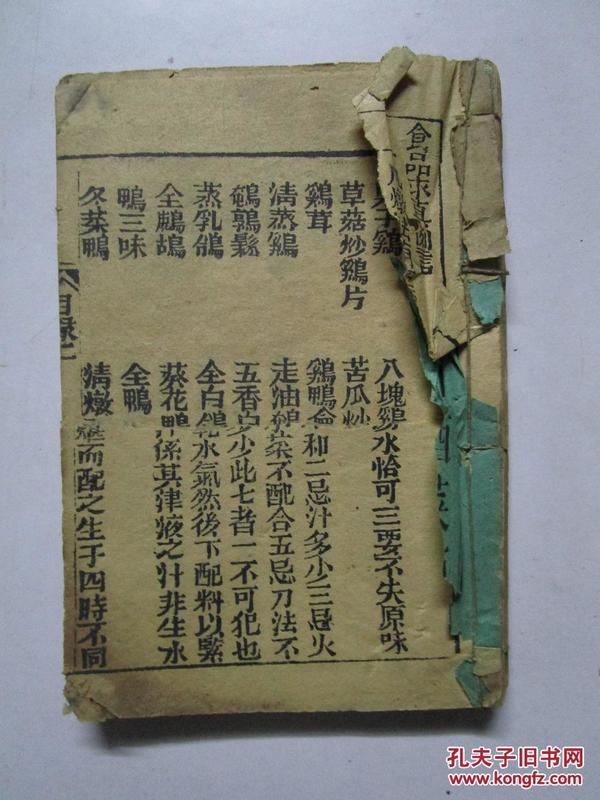 草菇炒鷄片
鷄茸
清蒸鷄
鵪鶉鬆
蒸乳鴿
全鷓鴣
鴨三味
冬菜鴨
目錄二
八塊鷄水恰可三要不失原味
苦瓜炒
鷄鴨會和二忌汁多少三忌火
走油鴿菜不配合五忌刀法不
五香 多少此七者一不可犯也
全白鴿 水氣然後下配料以緊
葵花鴨 係其津液之汁非生水
全鴨
清燉 而配之生于四時不同
孔夫子旧书网
www.kongfz.com